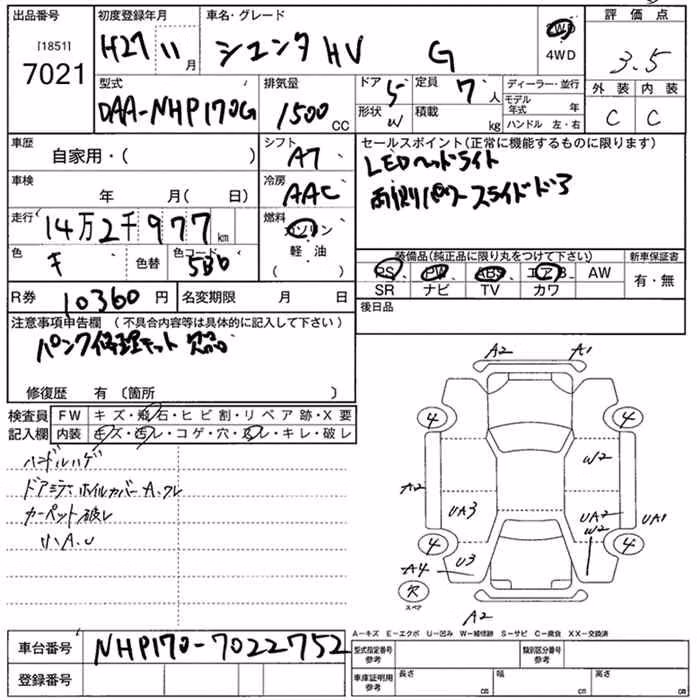 出品番号
[1851]
7021
初度登録年月
H27 11月
車名・グレード
シエンタ HV G
2WD
4WD
評価点
3.5
外装 内装
C C
型式
DAA-NHP170G
排気量
1500 CC
ドア 5
形状 W
定員 7人
積載 kg
ディーラー・並行
モデル年式 年
ハンドル 左・右
車歴
自家用・( )
シフト
AT
車検
年 月( 日)
冷房
AAC
走行
14万2千977 km
燃料
ガソリン
軽油
( )
色
色替
色コード
5B6
セールスポイント(正常に機能するものに限ります)
LEDヘッドライト
両側パワースライドドア
装備品(純正品に限り丸をつけて下さい)
PS PW ABS エアB AW
SR ナビ TV カワ
新車保証書
有・無
R券 10360 円
名変期限 月 日
後日品
注意事項申告欄 (不具合内容等は具体的に記入して下さい)
パンク修理キット 欠品
修復歴 有 〔箇所 〕
検査員記入欄
FW キズ・飛石・ヒビ割・リペア跡・X要
内装 キズ・汚レ・コゲ・穴・スレ・キレ・破レ
ハンドルハゲ
ドアミラー ホイルカバー A.ワレ
カーペット破レ
小A.U
A2 A1
4 4
W2
A2
UA3
UA2
W2
UA1
4 4
A4
U3
欠
スペア
A2
A－キズ E－エクボ U－凹み W－補修跡 S－サビ C－腐食 XX－交換済
車台番号 NHP170-7022752
登録番号
型式指定番号
参考
類別区分番号
参考
車庫証明用
参考
長さ cm
幅 cm
高さ cm